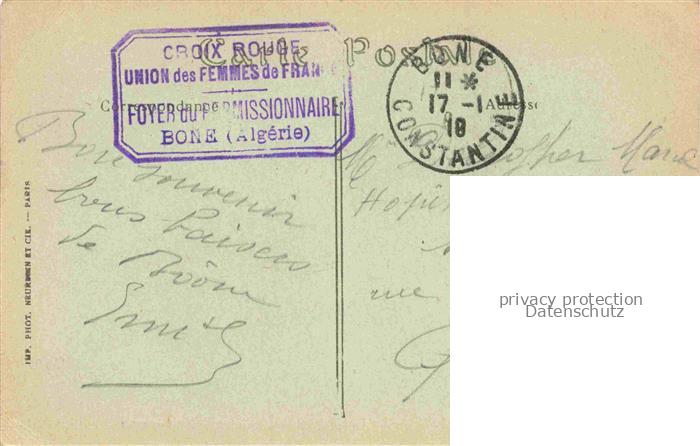 Carte Postale
CROIX ROUGE
UNION des FEMMES de FRANCE
FOYER du PERMISSIONNAIRE
BONE (Algérie)
BONE
11 *
17 -1
18
CONSTANTINE
Correspondance
Adresse
Bon souvenir
bons baisers
de Bône
Marie
rue
IMP. PHOT. NEURDEIN ET CIE. — PARIS
privacy protection
Datenschutz